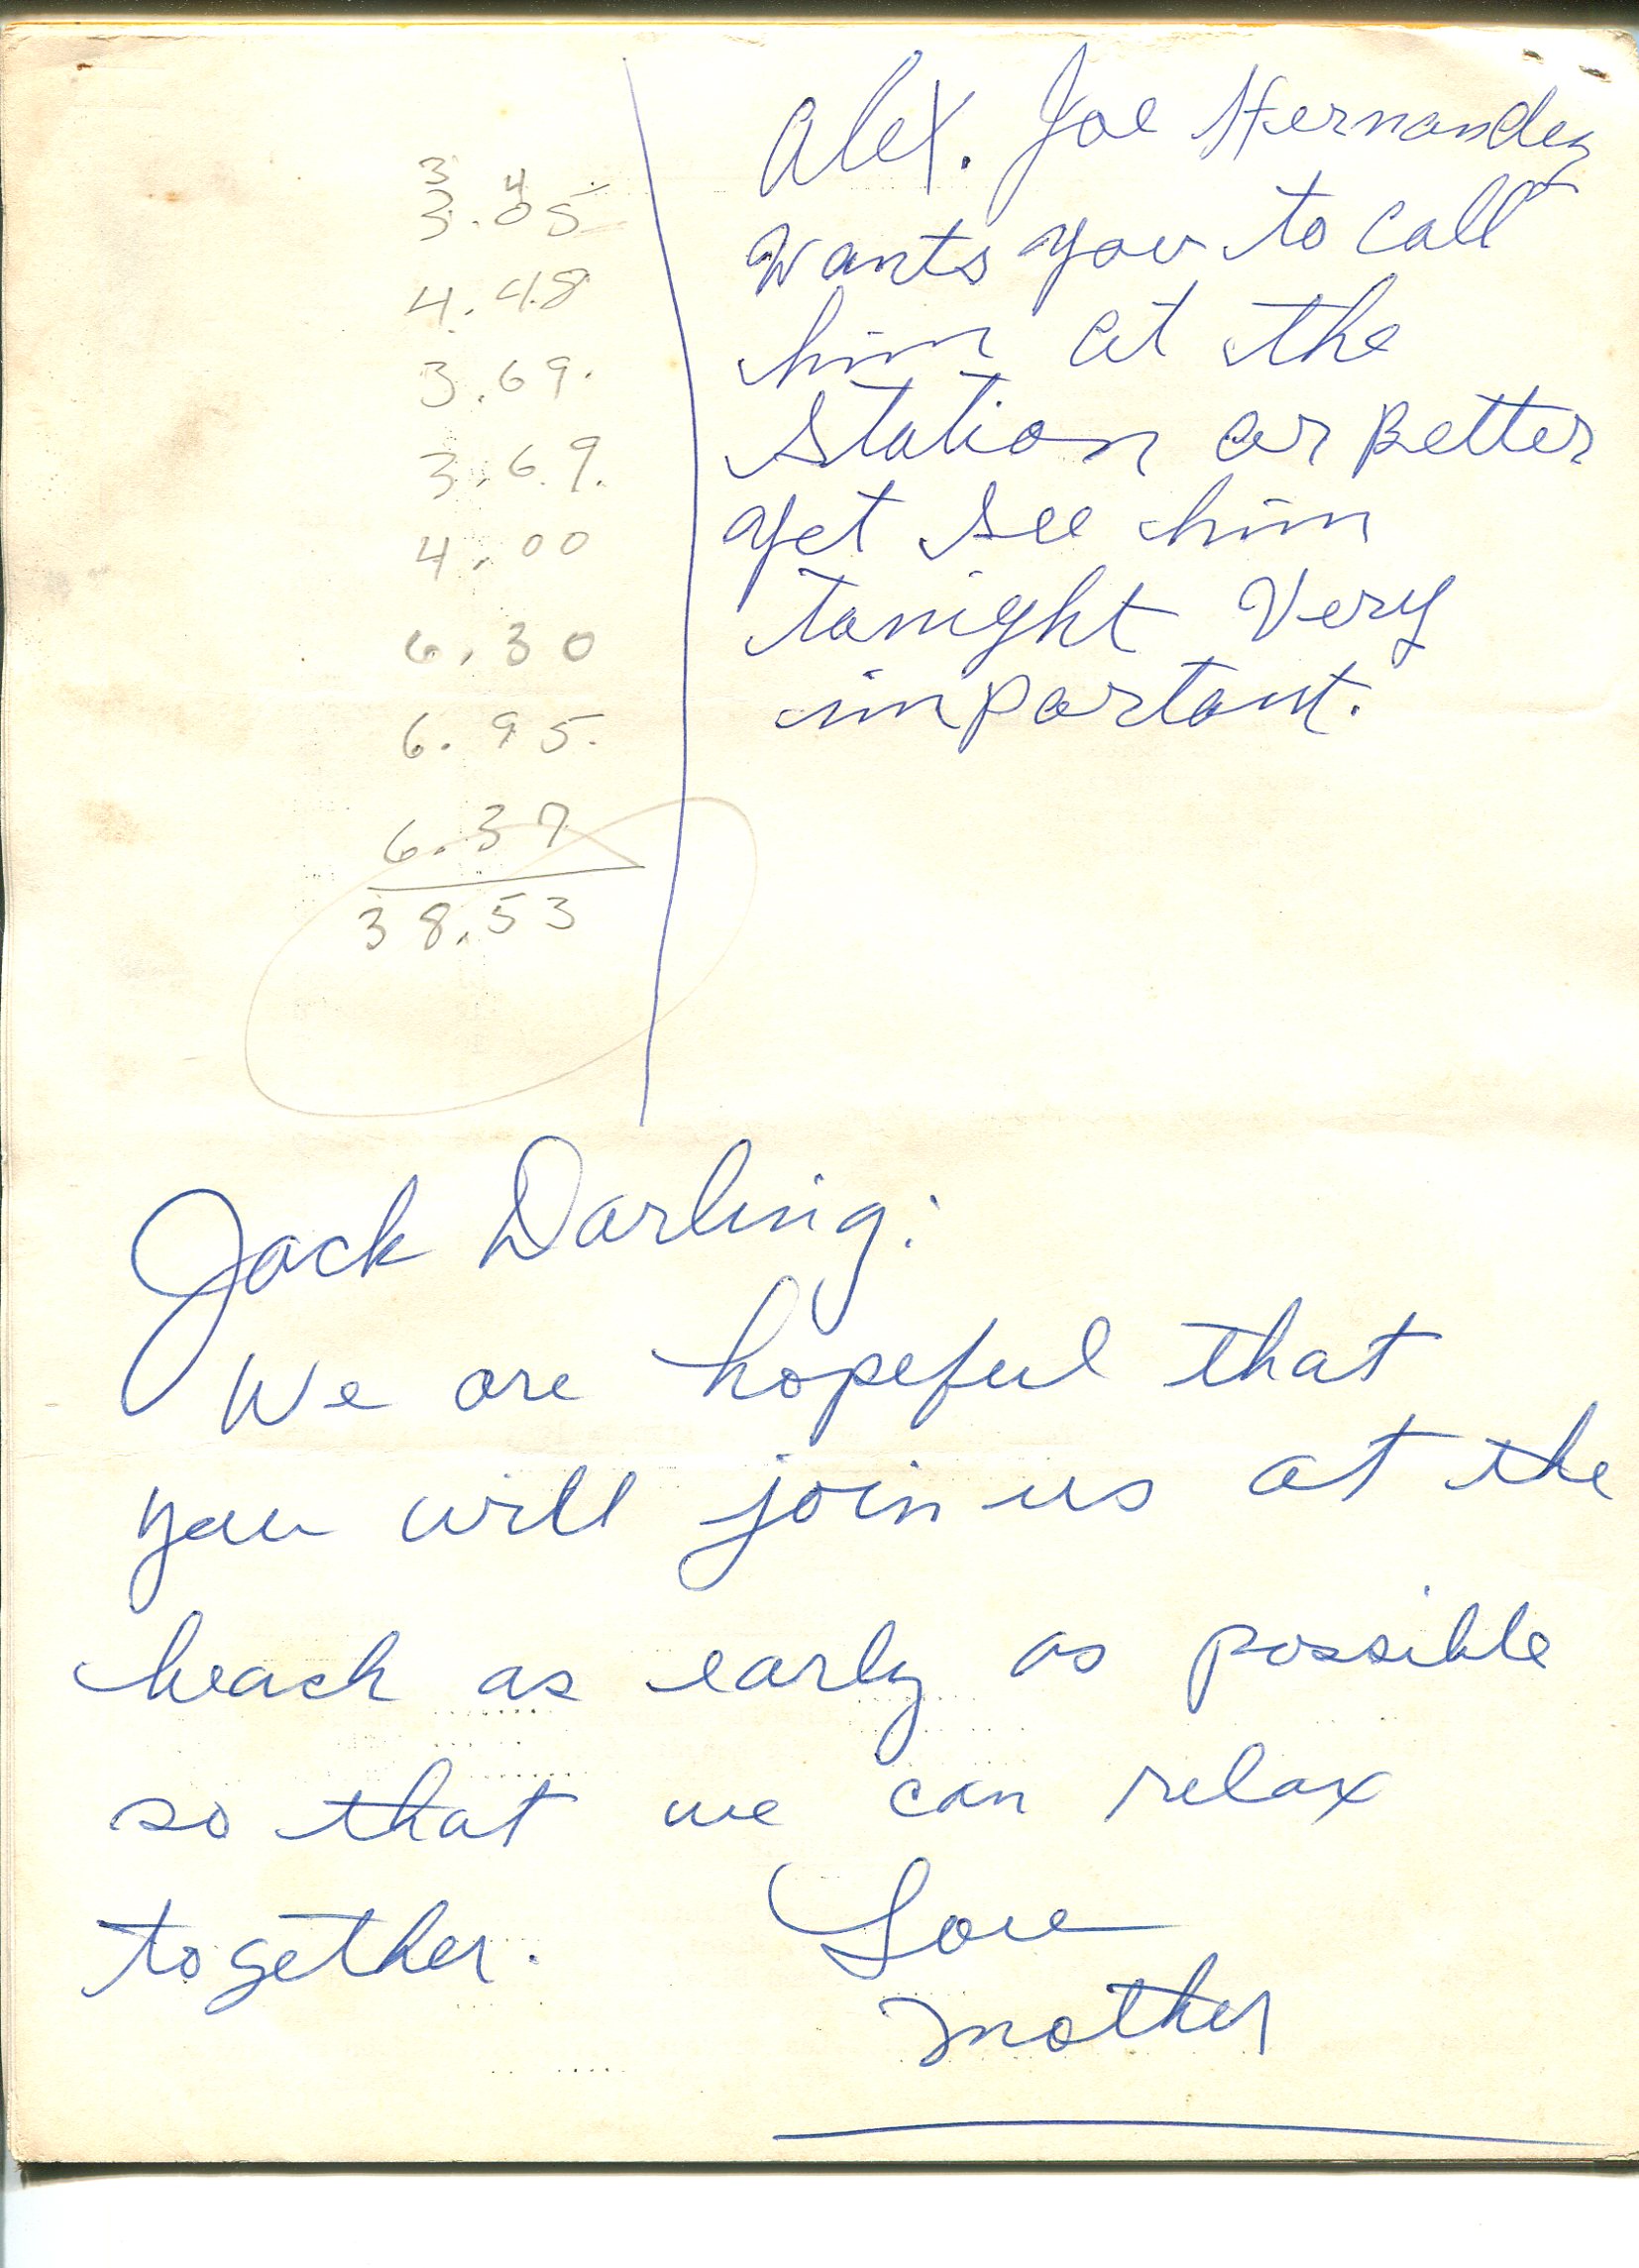 3 4
3.05
4.48
3.69.
3.69.
4.00
6.30
6.95.
6.37
38.53
Alex. Joe Hernandez
wants you to call
him at the
station or Better
yet see him
tonight Very
important.
Jack Darling:
We are hopeful that
you will join us at the
beach as early as possible
so that we can relax
together.
Love
Mother